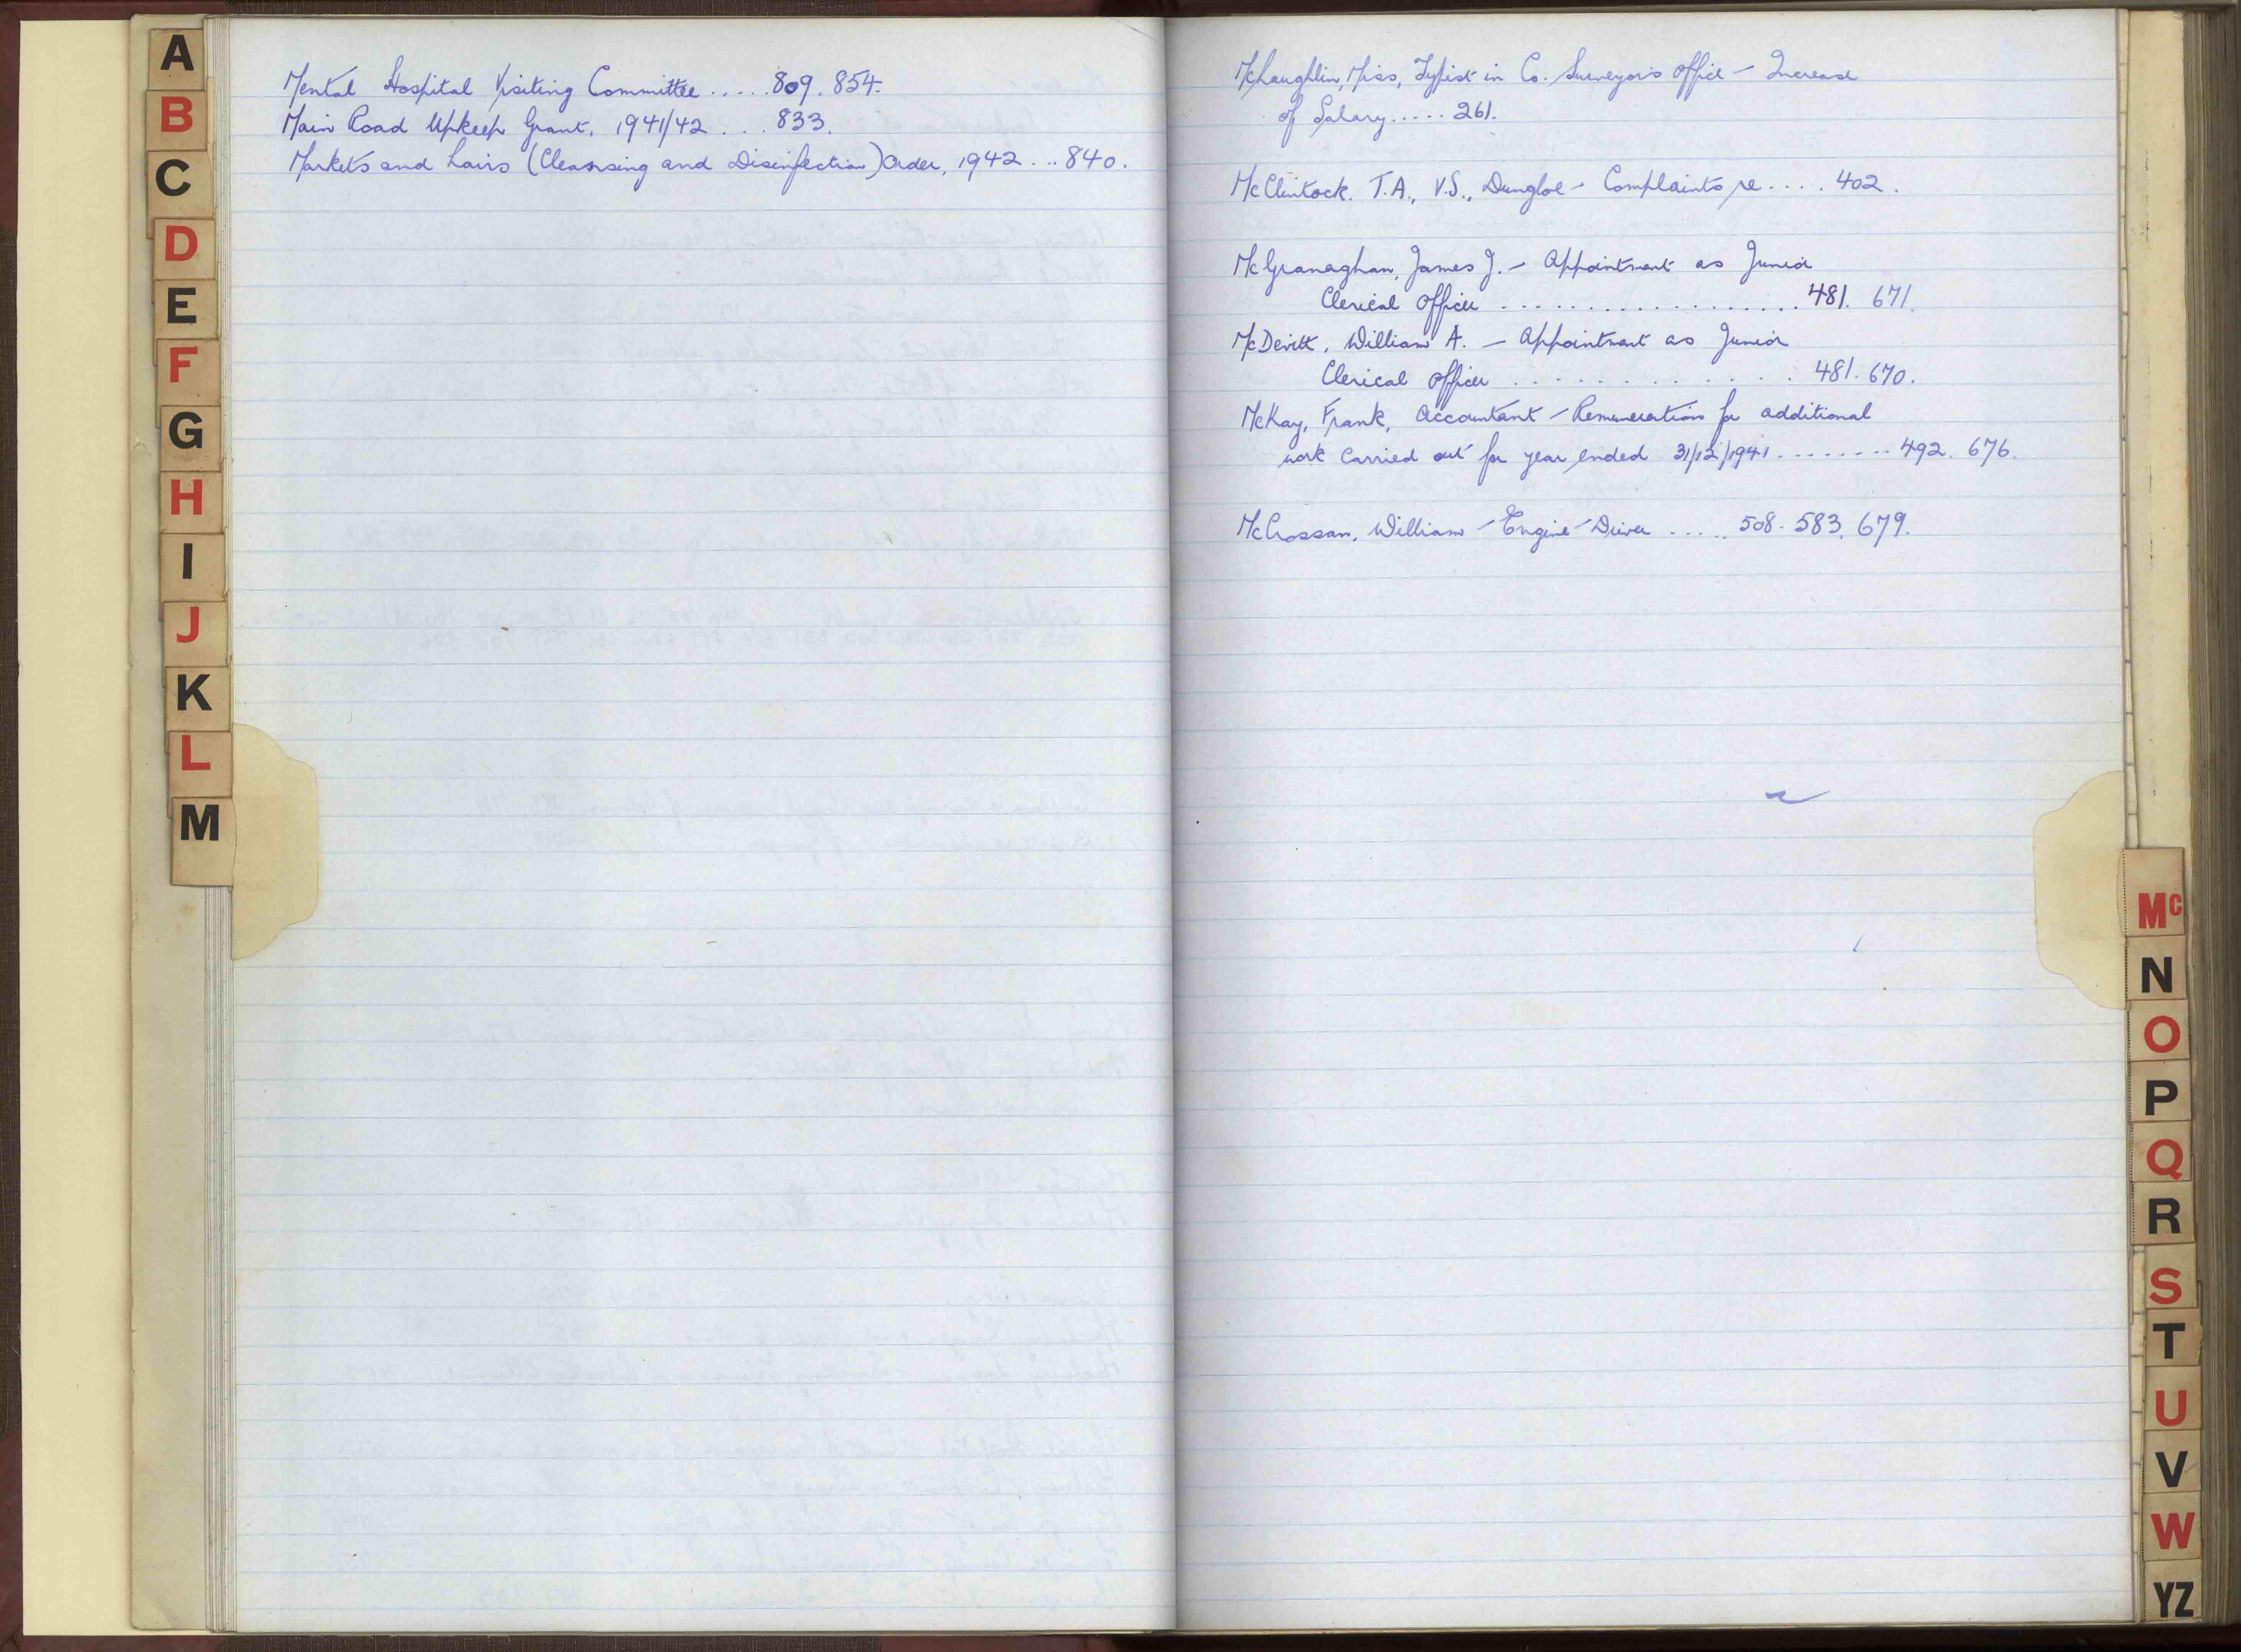 A
B
C
D
E
F
G
H
I
J
K
L
M
Mental Hospital Visiting Committee ..... 809. 854.
Main Road Upkeep Grant, 1941/42 ... 833.
Markets and Lairs (Cleansing and Disinfection) Order, 1942 ... 840.
McLaughlin, Miss, Typist in Co. Surveyor's Office - Increase
of Salary ..... 261.
McClintock. T.A., V.S., Dungloe - Complaints re .... 402.
McGranaghan, James J. - Appointment as Junior
Clerical Officer .................. 481. 671.
McDevitt, William A. - Appointment as Junior
Clerical Officer ............. 481. 670.
McKay, Frank, Accountant - Remuneration for additional
work carried out for year ended 31/12/1941 ........ 492. 676.
McCrossan, William - Engine-Driver ..... 508. 583. 679.
Mc
N
O
P
Q
R
S
T
U
V
W
YZ